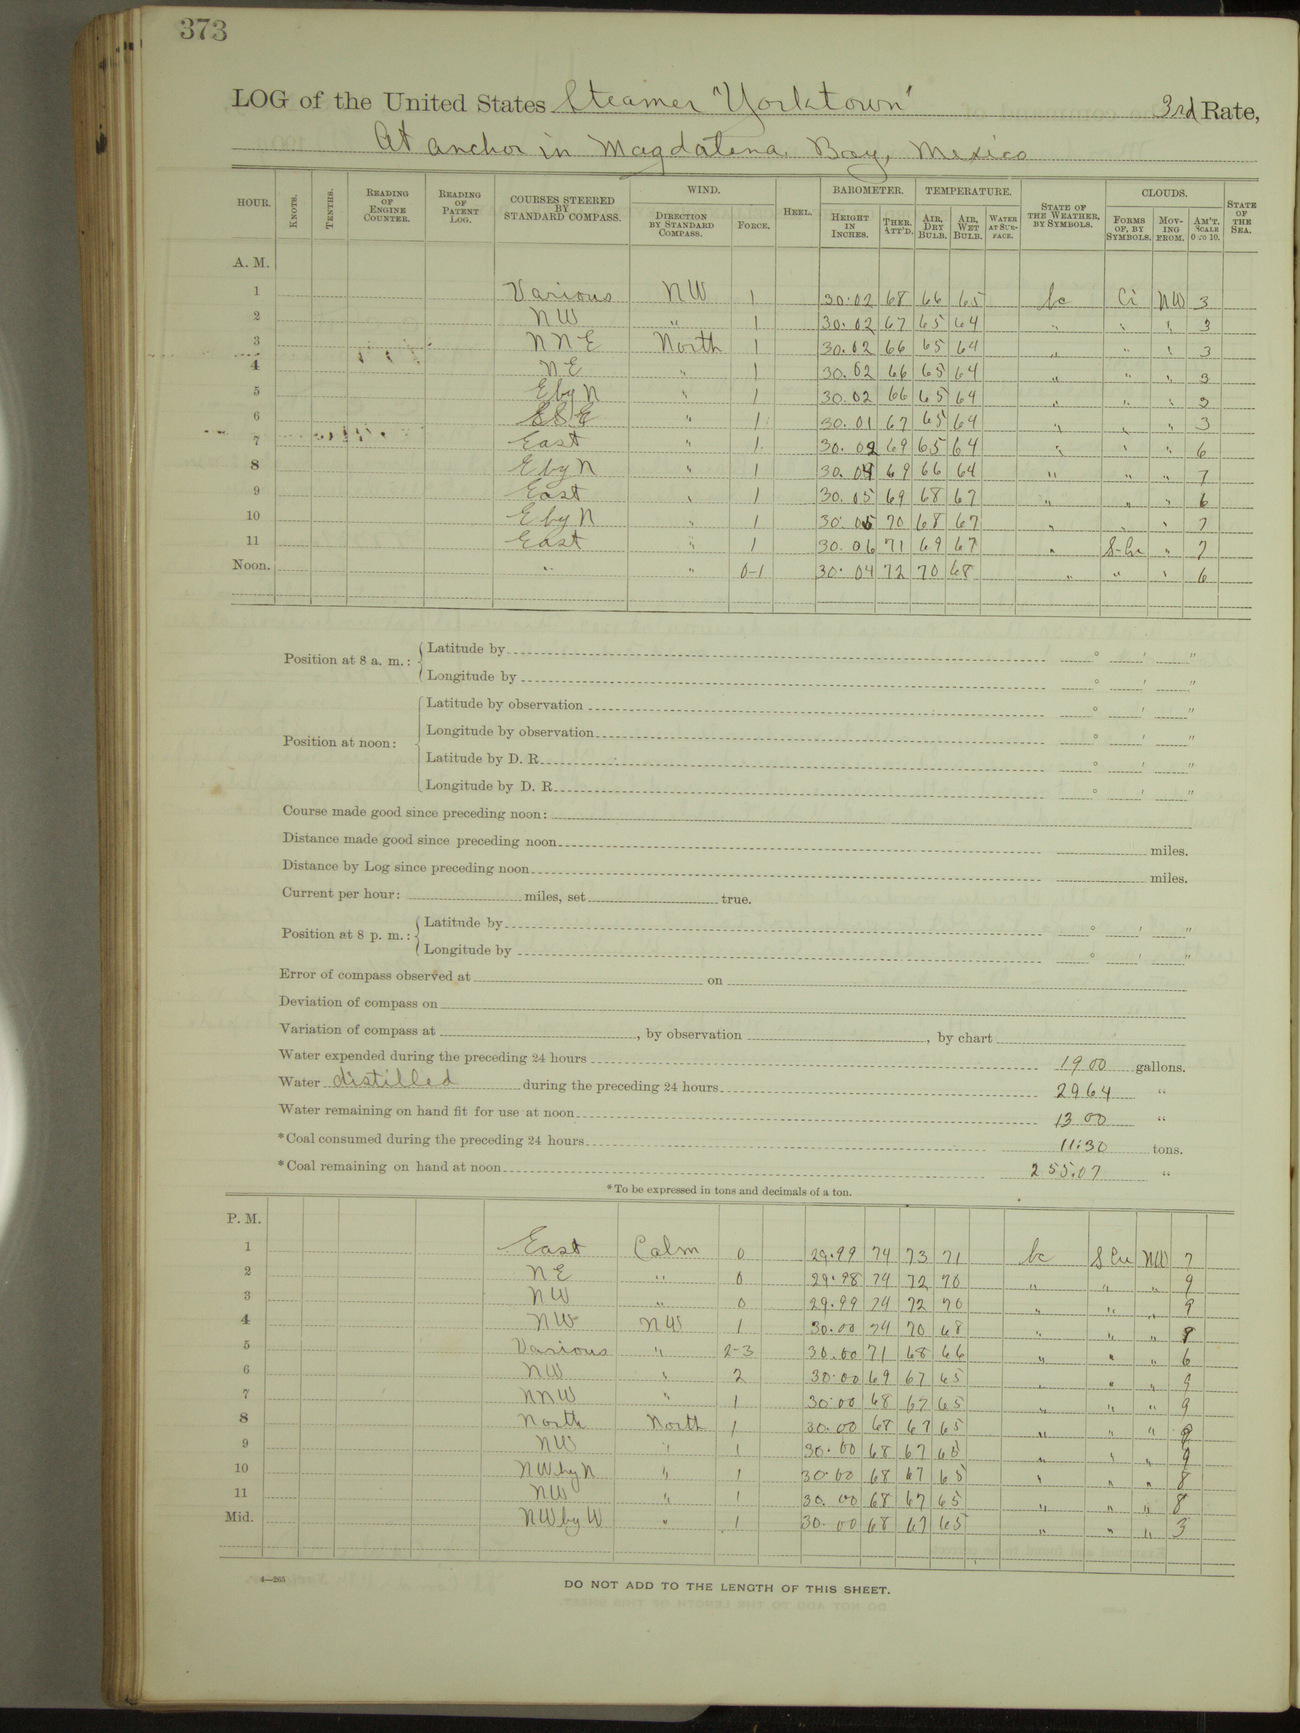 373
LOG of the United States Steamer "Yorktown" 3rd Rate,
At anchor in Magdalena Bay, Mexico
HOUR. KNOTS. TENTHS. READING OF ENGINE COUNTER. READING OF PATENT LOG. COURSES STEERED BY STANDARD COMPASS. WIND. DIRECTION BY STANDARD COMPASS. FORCE. HEEL. BAROMETER. HEIGHT IN INCHES. THER. ATT'D. TEMPERATURE. AIR, DRY BULB. AIR, WET BULB. WATER AT SURFACE. STATE OF THE WEATHER, BY SYMBOLS. CLOUDS. FORMS OF, BY SYMBOLS. MOVING FROM. AM'T, SCALE 0 TO 10. STATE OF THE SEA.
A. M.
1 Various NW 1 30.02 68 66 65 bc Ci NW 3
2 NW " 1 30.02 67 65 64 " " " 3
3 NNE North 1 30.02 66 65 64 " " " 3
4 NE " 1 30.02 66 65 64 " " " 3
5 E by N " 1 30.02 66 65 64 " " " 3
6 SSE " 1 30.01 67 65 64 " " " 3
7 East " 1 30.02 69 65 64 " " " 6
8 E by N " 1 30.04 69 66 64 " " " 7
9 East " 1 30.05 69 68 67 " " " 6
10 E by N " 1 30.05 70 68 67 " " " 7
11 East " 1 30.06 71 69 67 " S-Cu " 7
Noon. " " 0-1 30.04 72 70 68 " " " 6
Position at 8 a. m.: Latitude by ° ' "
Longitude by ° ' "
Position at noon: Latitude by observation ° ' "
Longitude by observation ° ' "
Latitude by D. R. ° ' "
Longitude by D. R. ° ' "
Course made good since preceding noon:
Distance made good since preceding noon miles.
Distance by Log since preceding noon miles.
Current per hour: miles, set true.
Position at 8 p. m.: Latitude by ° ' "
Longitude by ° ' "
Error of compass observed at on
Deviation of compass on
Variation of compass at , by observation , by chart
Water expended during the preceding 24 hours 1900 gallons.
Water distilled during the preceding 24 hours 2964 "
Water remaining on hand fit for use at noon 1300 "
*Coal consumed during the preceding 24 hours 11.30 tons.
*Coal remaining on hand at noon 255.07 "
*To be expressed in tons and decimals of a ton.
P. M.
1 East Calm 0 29.99 74 73 71 bc S Cu NW 7
2 NE " 0 29.98 74 72 70 " " " 9
3 NW " 0 29.99 74 72 70 " " " 9
4 NW NW 1 30.00 74 70 68 " " " 8
5 Various " 2-3 30.00 71 68 66 " " " 6
6 NW " 2 30.00 69 67 65 " " " 9
7 NNW " 1 30.00 68 67 65 " " " 9
8 North North 1 30.00 68 67 65 " " " 9
9 NW " 1 30.00 68 67 65 " " " 9
10 NW by N " 1 30.00 68 67 65 " " " 8
11 NW " 1 30.00 68 67 65 " " " 8
Mid. NW by W " 1 30.00 68 67 65 " " " 3
4—265
DO NOT ADD TO THE LENGTH OF THIS SHEET.